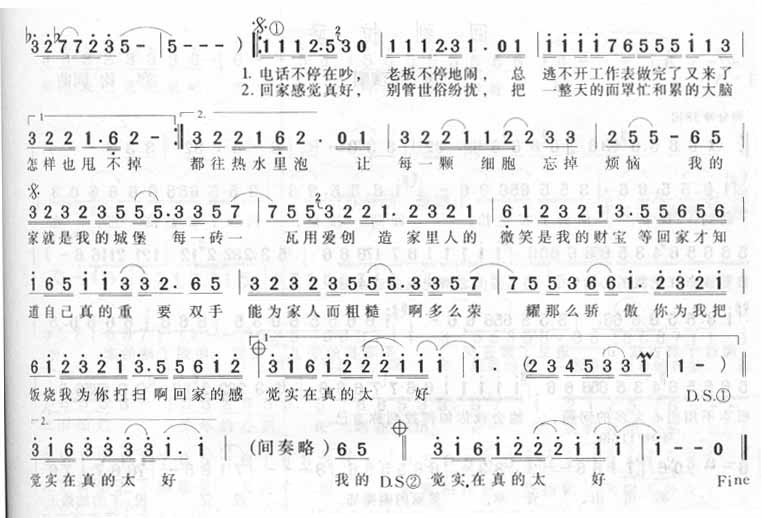 3 2 7 7 2 3 5 - | 5 - - - ) 𝄋① ‖: 1 1 1 2·5 3 0 | 1 1 1 2·3 1 . 0 1 | 1 1 1 1 1 7 6 5 5 5 1 1 3
1. 电话不停在吵， 老板不停地闹， 总 逃不开工作表做完了又来了
2. 回家感觉真好， 别管世俗纷扰， 把 一整天的面罩忙和累的大脑
1. 2.
3 2 2 1·6 2 - :‖ 3 2 2 1 6 2 · 0 1 | 3 2 2 1 1 2 2 3 3 | 2 5 5 - 6 5
怎样也甩不掉 都往热水里泡 让 每一颗 细胞 忘掉 烦恼 我的
𝄋
3 2 3 2 3 5 5 5 5·3 3 5 7 | 7 5 5 2 2 1· 2 3 2 1 | 6 1 2 3 2 1 3·5 5 6 5 6
家就是我的城堡 每一砖一 瓦用爱创 造 家里人的 微笑是我的财宝 等回家才知
1 6 5 1 1 3 3 2· 6 5 | 3 2 3 2 3 5 5 5·3 3 5 7 | 7 5 3 6 6 1· 2 3 2 1
道自己真的重 要 双手 能为家人而粗糙 啊多么荣 耀那么骄 傲 你为我把
1.
6 1 2 3 2 1 3·5 5 6 1 2 | 3 1 6 1 2 2 2 1 1 1 | 1 · (2 3 4 5 3 3 1 | 1 - ) ‖
饭烧我为你打扫 啊回家的感 觉实在真的太 好 D.S.①
2.
3 1 6 3 3 3 3 1· 1 | (间奏略) 6 5 | 3 1 6 1 2 2 2 1 1 1 | 1 - - 0 ‖
觉实在真的太 好 我的 D.S② 觉实在真的太 好 Fine